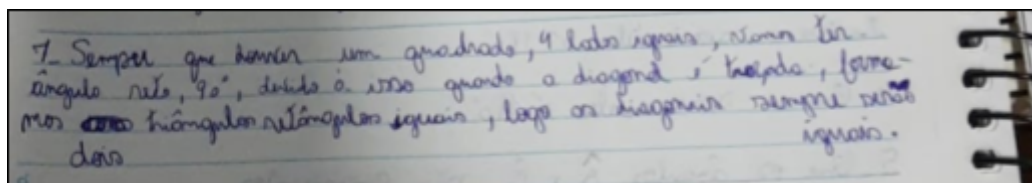 1- Sempre que houver um quadrado, 4 lados iguais, vamos ter
ângulo reto, 90°, devido à isso quando a diagonal é traçada, forma-
mos triângulos retângulos iguais, logo as diagonais sempre serão
dois iguais.